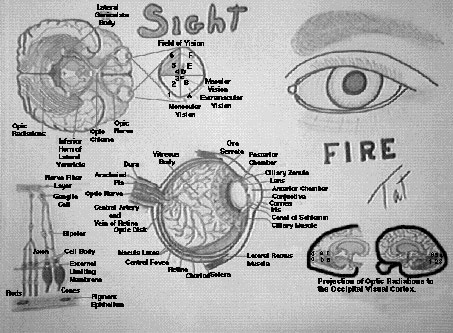 Lateral
Geniculate
Body
Sight
Field of Vision
Macular
Vision
Extramacular
Vision
Monocular
Vision
Optic
Radiations
Optic
Chiasma
Optic
Nerve
Inferior
Horn of
Lateral
Ventricle
FIRE
Ora
Serrata
Posterior
Chamber
Vitreous
Body
Dura
Arachnoid
Pia
Optic Nerve
Central Artery
and
Vein of Retina
Optic Disk
Ciliary Zonule
Lens
Anterior Chamber
Conjuctiva
Cornea
Iris
Canal of Schlemm
Ciliary Muscle
Macula Lutea
Central Fovea
Retina
Choroid
Sclera
Lateral Rectus
Muscle
Nerve Fiber
Layer
Ganglia
Cell
Bipolar
Axon
Cell Body
External
Limiting
Membrane
Rods
Cones
Pigment
Epithelium
Projection of Optic Radiations to
the Occipital Visual Cortex.